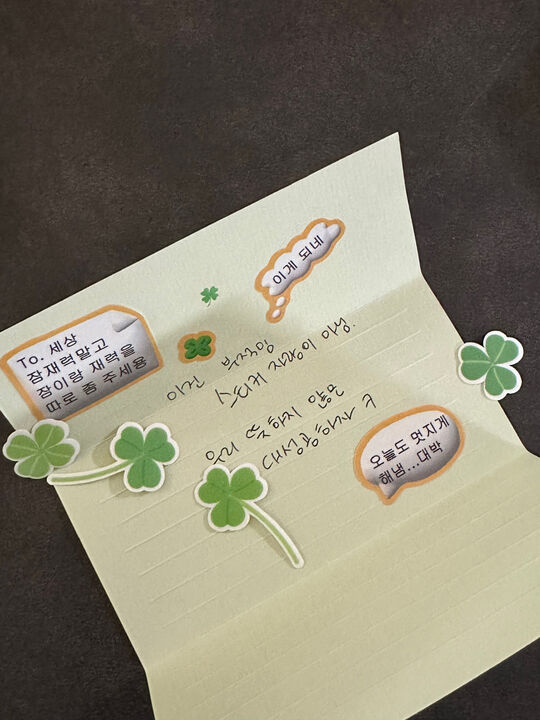 이게 되네
To. 세상
잠재력말고
잠이랑 재력을
따로 좀 주세용
이건 부적임
스티커 지정이 아님.
우리 뜻하지 않은
대성공하자 ㅋ
오늘도 멋지게
해냄...대박